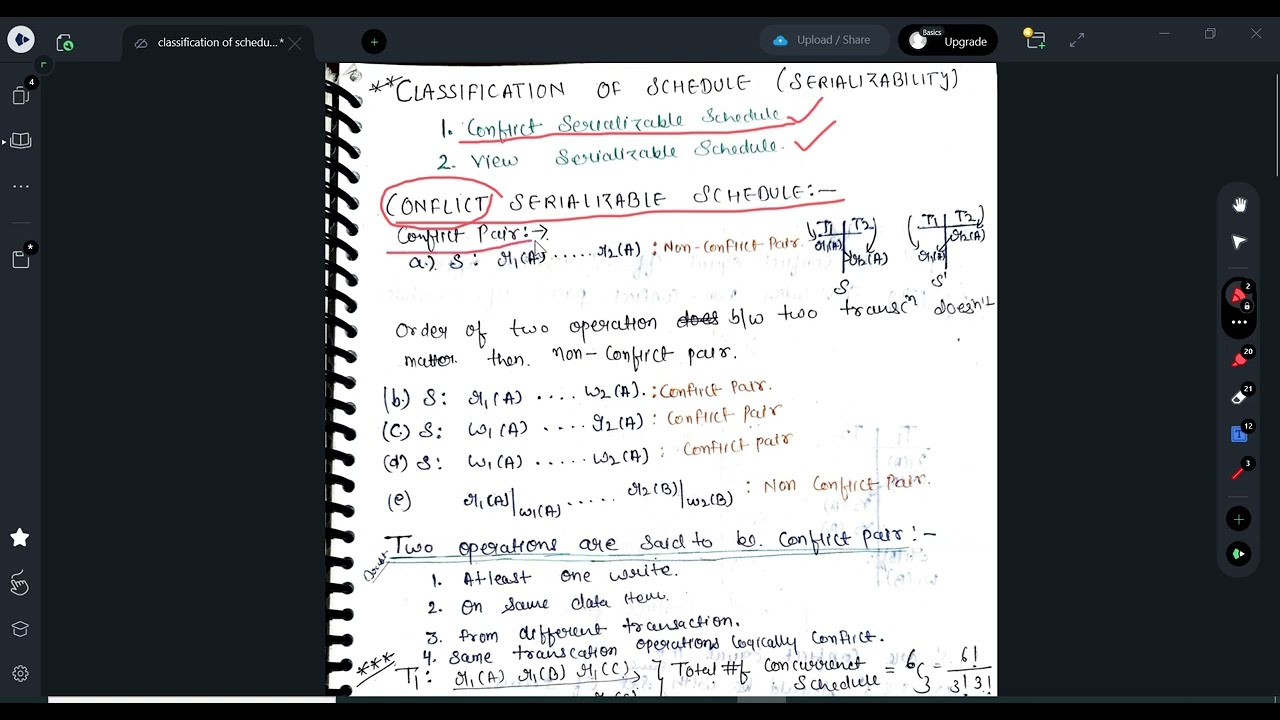 classification of schedu...*
Upload / Share
Basics
Upgrade
4
** CLASSIFICATION OF SCHEDULE (SERIALIZABILITY)
1. Conflict Serializable Schedule
2. View Serializable Schedule.
CONFLICT SERIALIZABLE SCHEDULE:-
Conflict Pair:→
a.) S: r1(A) ..... r2(A) : Non-Conflict Pair.
T1 T2
r1(A)
r2(A)
S
T1 T2
r2(A)
r1(A)
S'
Order of two operation does b/w two transcn doesn't
matter then non-conflict pair.
(b.) S: r1(A) .... w2(A). : Conflict Pair.
(c) S: w1(A) .... r2(A) : Conflict Pair
(d) S: w1(A) ..... w2(A) : Conflict pair
(e) r1(A)|w1(A) ..... r2(B)|w2(B) : Non Conflict Pair.
Two operations are said to be conflict pair:-
1. Atleast one write.
2. On same data item.
3. from different transaction.
4. Same transcation operations logically conflict.
*** T1: r1(A) r1(B) r1(C) } Total # of concurrent schedule = 6C3 = 6!/3!3!
2
20
21
12
3